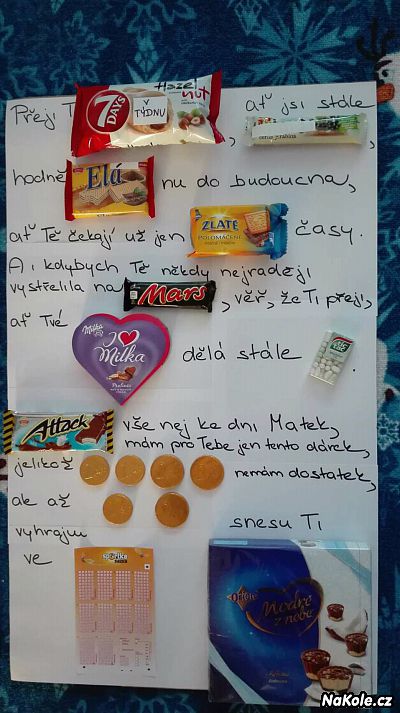 Přeji T
Hazel nut
7 DAYS
V TÝDNU
, ať jsi stále
,
hodně Ela nu do budoucna,
ať Tě čekají už jen ZLATÉ POLOMÁČENÉ časy.
A i kdybych Tě někdy nejraději
vystřelila na Mars, věř, že Ti přeji,
ať Tvé
Milka
I ♥ Milka
Pralinés
dělá stále tic tac.
Attack vše nej ke dni Matek,
mám pro Tebe jen tento dárek,
jelikož nemám dostatek,
ale až
vyhraju snesu Ti
ve
Orion
Modré z nebe
NaKole.cz